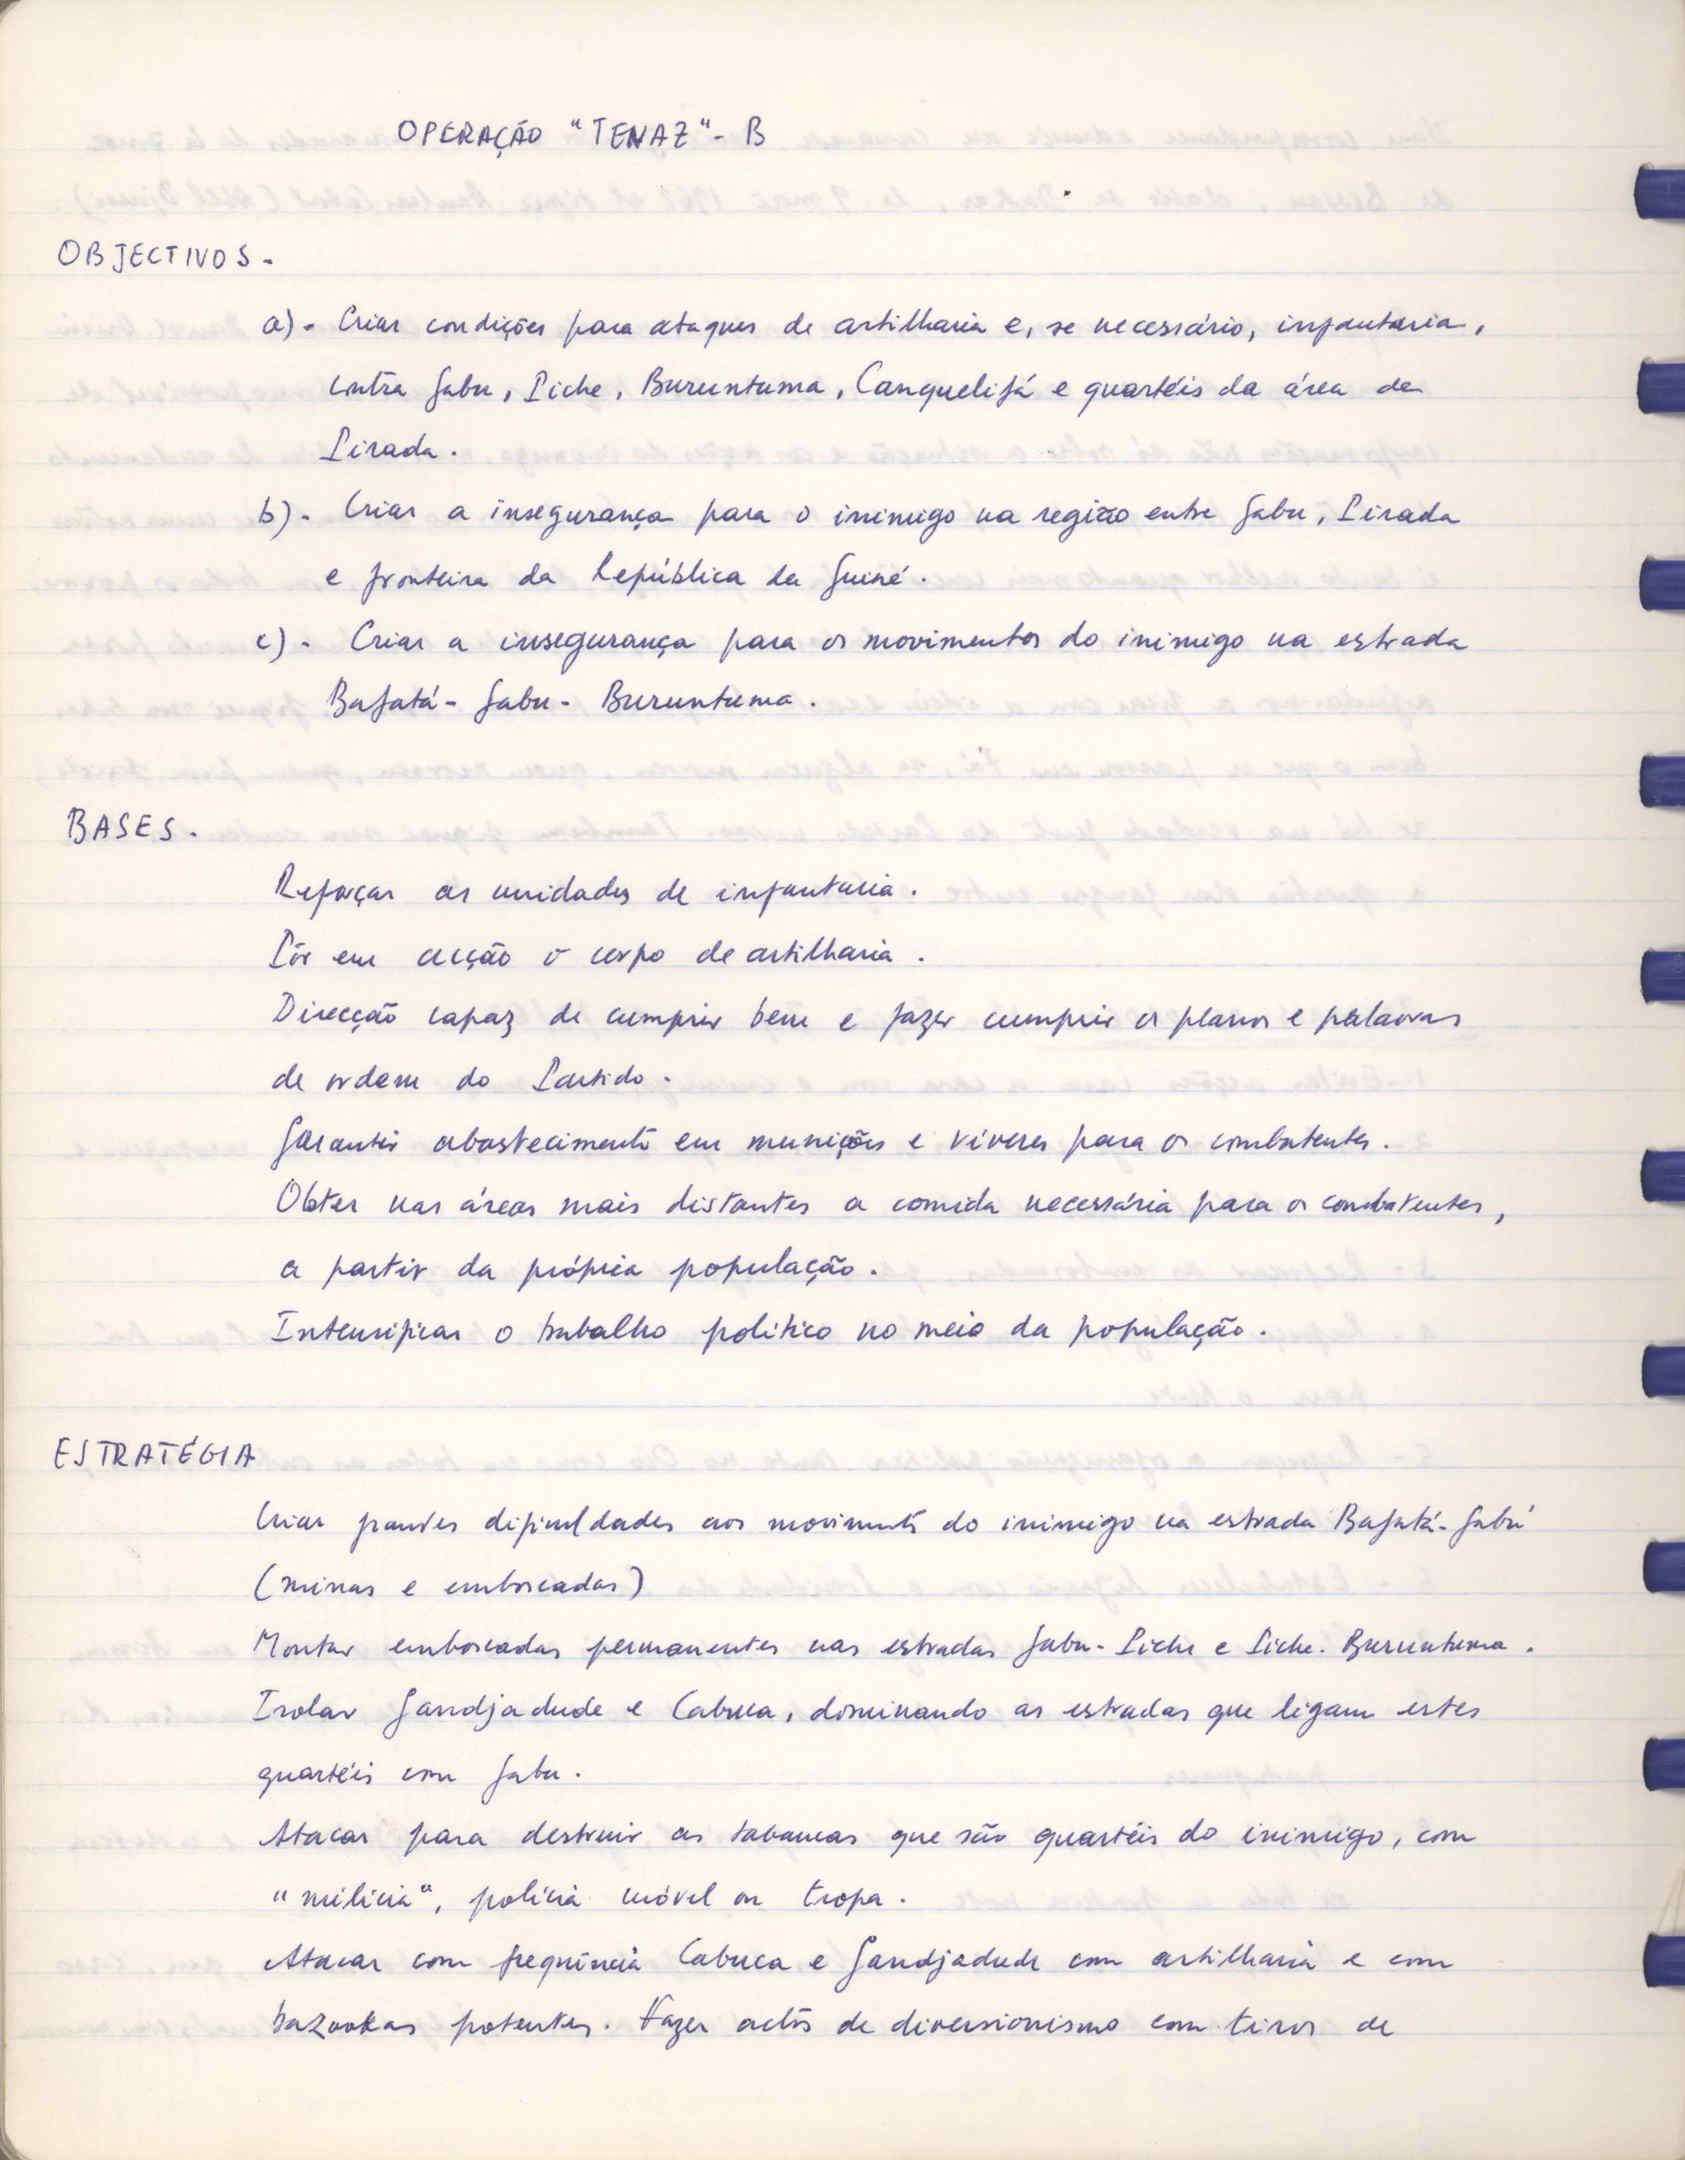 OPERAÇÃO "TENAZ" - B
OBJECTIVOS -
a) - Criar condições para ataques de artilharia e, se necessário, infantaria,
contra Gabu, Piche, Buruntuma, Canquelifá e quartéis da área de
Pirada.
b) - Criar a insegurança para o inimigo na região entre Gabu, Pirada
e fronteira da República da Guiné.
c) - Criar a insegurança para os movimentos do inimigo na estrada
Bafatá - Gabu - Buruntuma.
BASES -
Reforçar as unidades de infantaria.
Pôr em acção o corpo de artilharia.
Direcção capaz de cumprir bem e fazer cumprir os planos e palavras
de ordem do Partido.
Garantir abastecimento em munições e víveres para os combatentes.
Obter nas áreas mais distantes a comida necessária para os combatentes,
a partir da própria população.
Intensificar o trabalho político no meio da população.
ESTRATÉGIA
Criar grandes dificuldades aos movimentos do inimigo na estrada Bafatá - Gabú
(minas e emboscadas)
Montar emboscadas permanentes nas estradas Gabu - Piche e Piche - Buruntuma.
Isolar Gandjadude e Cabuca, dominando as estradas que ligam estes
quartéis com Gabu.
Atacar para destruir as tabancas que são quartéis do inimigo, com
"milícia", polícia móvel ou tropa.
Atacar com frequência Cabuca e Gandjadude com artilharia e com
bazookas potentes. Fazer actos de diversionismo com tiros de